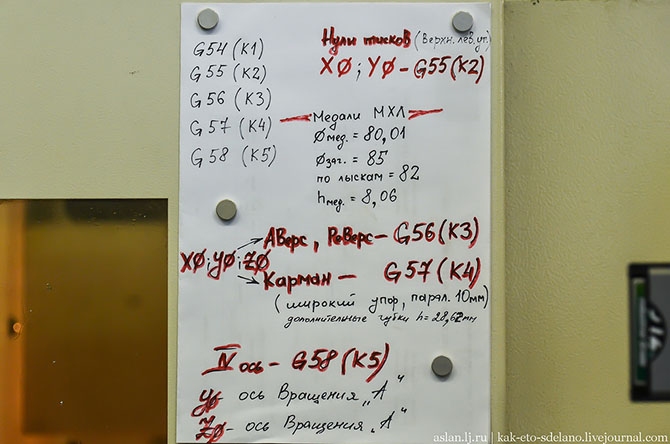 G54 (К1)
G55 (К2)
G56 (К3)
G57 (К4)
G58 (К5)
Нули тисков (Верхн. лев. уг.)
XØ; YØ - G55(К2)
Медали МХЛ
Øмед. = 80,01
Øзаг. = 85
по лыскам = 82
hмед. = 8,06
XØ; YØ; ZØ
Аверс, Реверс - G56(К3)
Карман - G57(К4)
(широкий упор, парал. 10мм)
дополнительные губки h = 28,62мм
IV ось - G58(К5)
YØ - ось Вращения „А“
ZØ - ось Вращения „А“
aslan.lj.ru | kak-eto-sdelano.livejournal.com